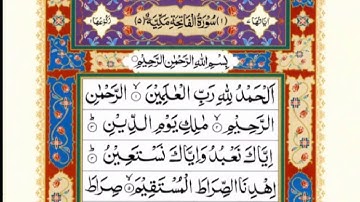 اٰیَاتُهَا ٧ (١) سُوْرَةُ الْفَاتِحَةِ مَكِّیَّةٌ (٥) رُكُوْعُهَا ١
بِسْمِ اللهِ الرَّحْمٰنِ الرَّحِیْمِ
اَلْحَمْدُ لِلّٰهِ رَبِّ الْعٰلَمِیْنَ ۙ الرَّحْمٰنِ
الرَّحِیْمِ ۙ مٰلِكِ یَوْمِ الدِّیْنِ ؕ
اِیَّاكَ نَعْبُدُ وَاِیَّاكَ نَسْتَعِیْنُ ؕ
اِهْدِنَا الصِّرَاطَ الْمُسْتَقِیْمَ ۙ صِرَاطَ